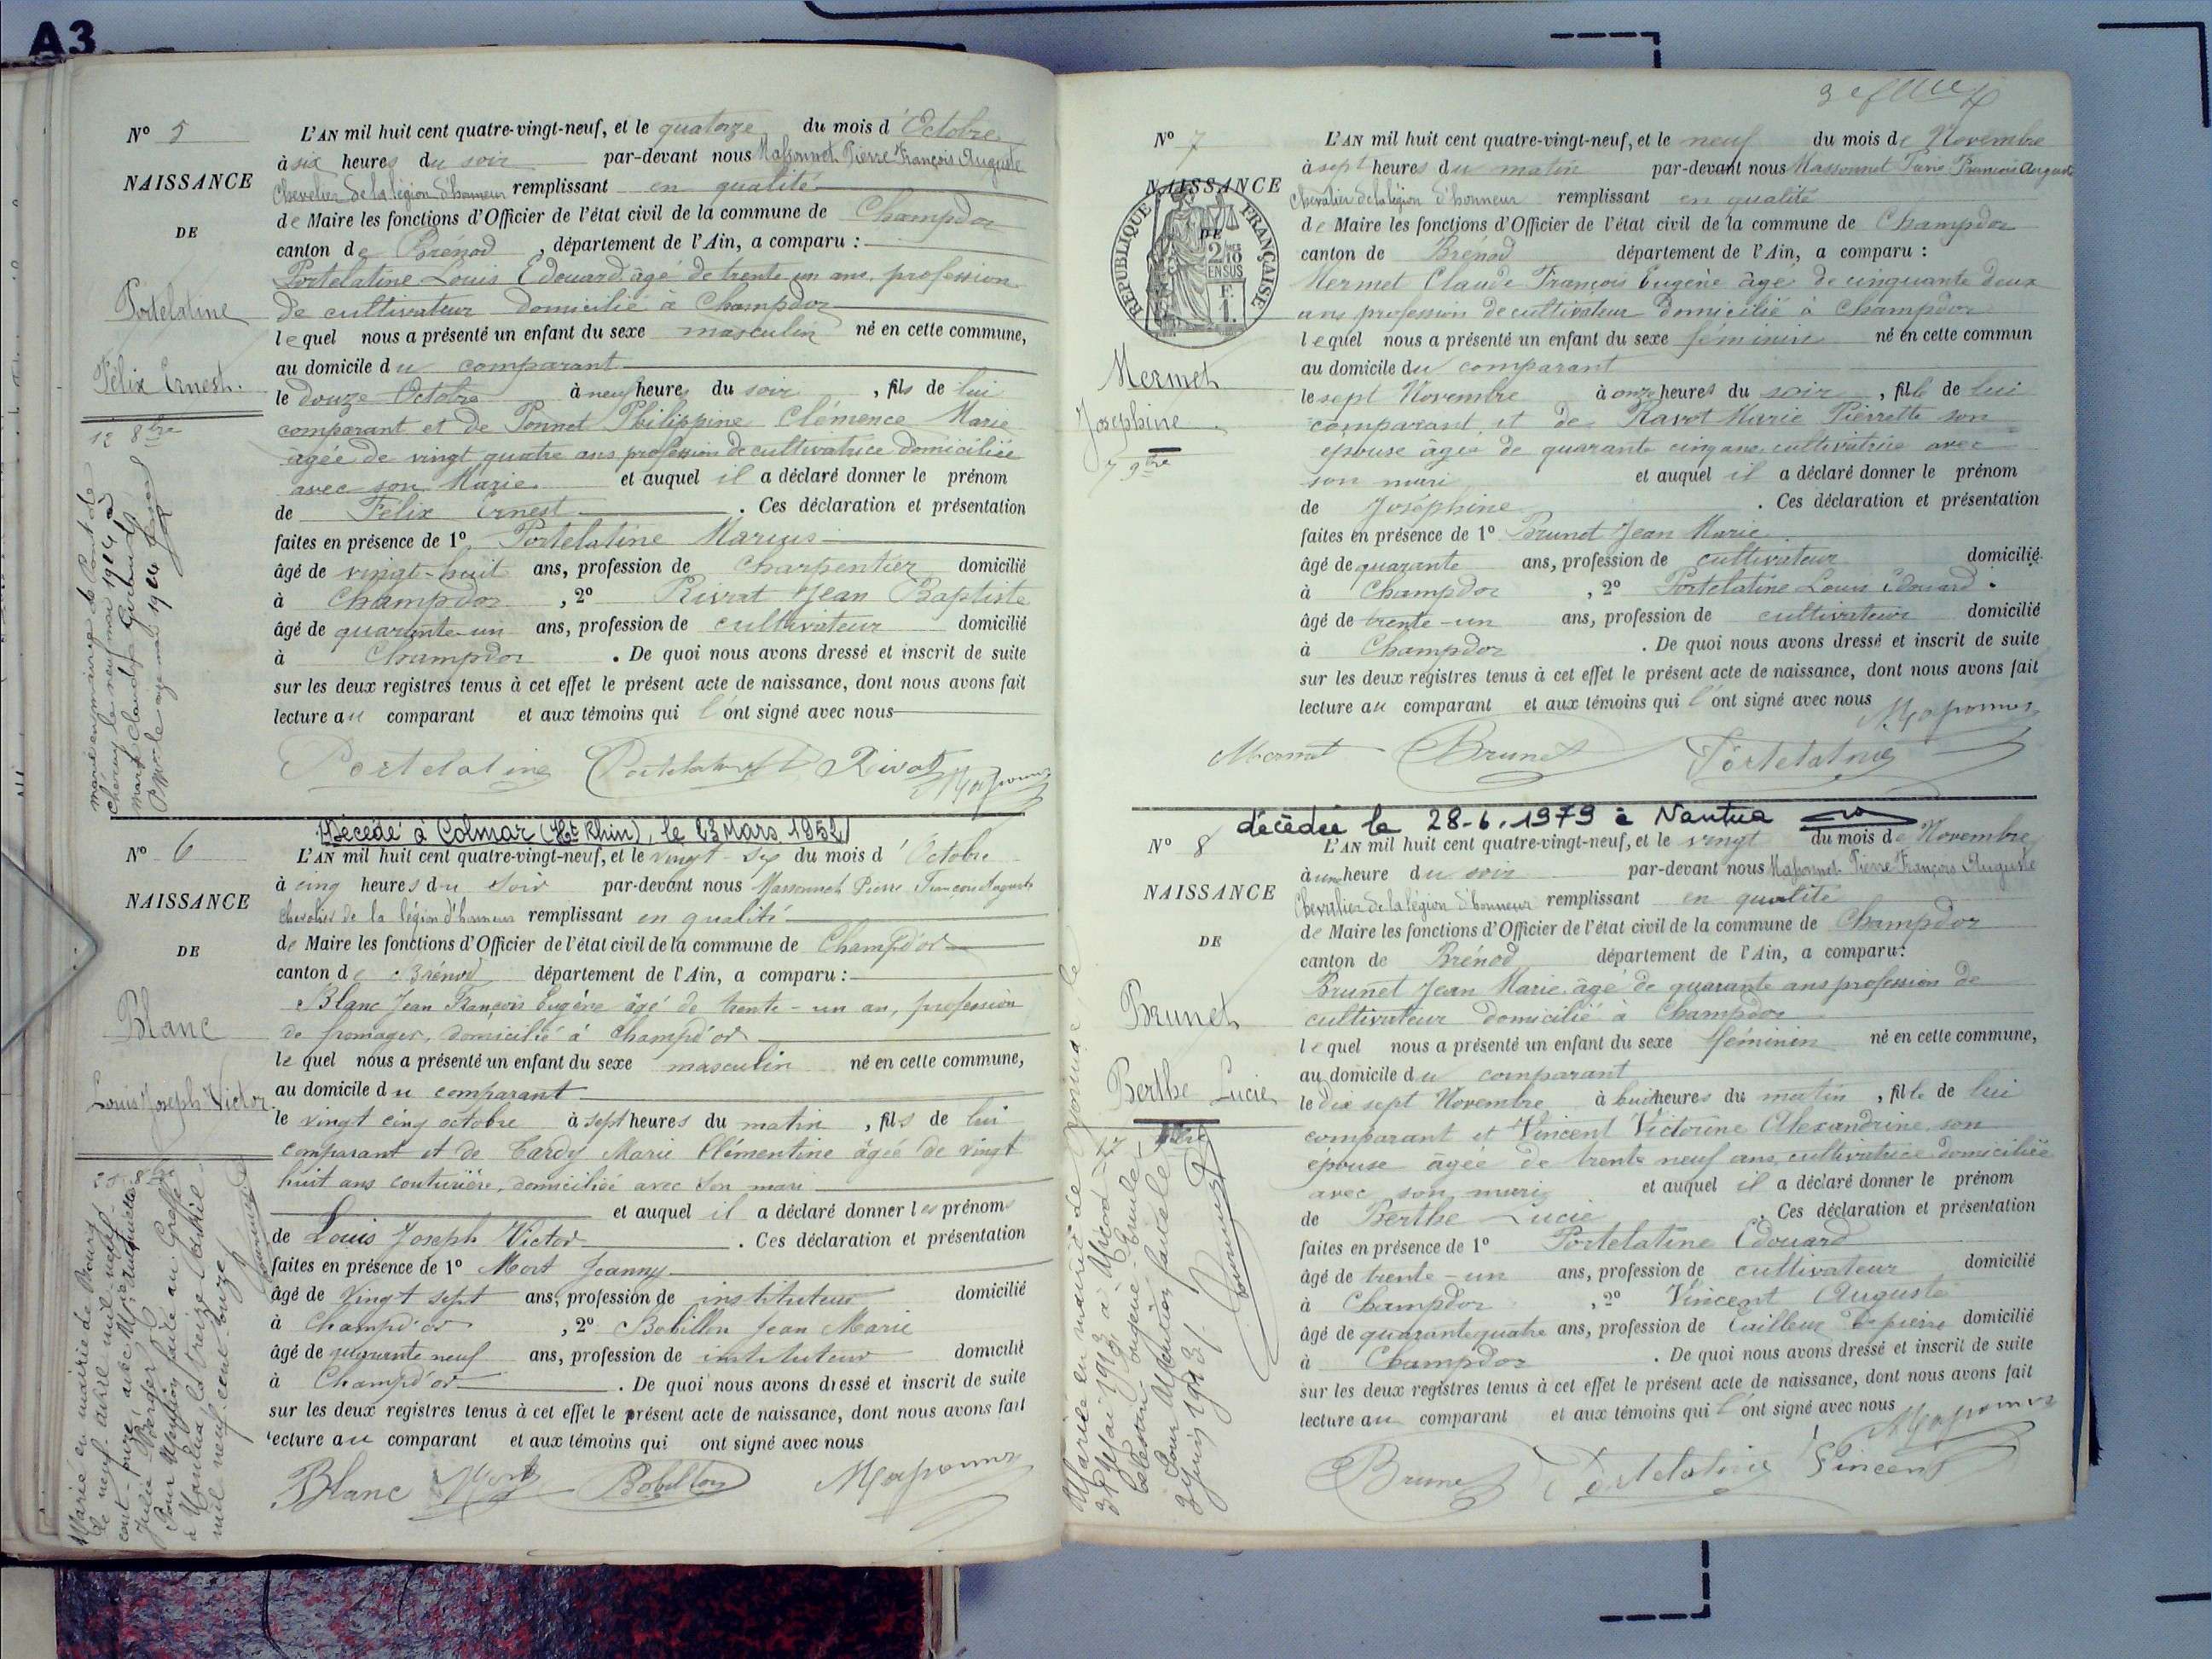 A3
N° 5
NAISSANCE
DE
Portelatine
Félix Ernest.
12 8bre
L'AN mil huit cent quatre-vingt-neuf, et le quatorze du mois d'Octobre
à six heures du soir par-devant nous Massonnet Pierre François Auguste
Chevalier de la légion d'honneur remplissant en qualité
de Maire les fonctions d'Officier de l'état civil de la commune de Champdor
canton de Brenod, département de l'Ain, a comparu :
Portelatine Louis Edouard âgé de trente un ans, profession
de cultivateur domicilié à Champdor
lequel nous a présenté un enfant du sexe masculin né en cette commune,
au domicile du comparant
le douze Octobre à neuf heures du soir, fils de lui
comparant et de Ponnet Philippine Clémence Marie
âgée de vingt quatre ans profession de cultivatrice domiciliée
avec son Marie et auquel il a déclaré donner le prénom
de Félix Ernest. Ces déclaration et présentation
faites en présence de 1° Portelatine Marius
âgé de vingt-huit ans, profession de Charpentier domicilié
à Champdor, 2° Rivat Jean Baptiste
âgé de quarante-un ans, profession de cultivateur domicilié
à Champdor. De quoi nous avons dressé et inscrit de suite
sur les deux registres tenus à cet effet le présent acte de naissance, dont nous avons fait
lecture au comparant et aux témoins qui l'ont signé avec nous
Portelatine Portelatine Rivat Massonnet
marié en mairie de Pont de
le neuf mars 1904 à
Claudia
mars 1904
N° 6
NAISSANCE
DE
Blanc
Louis Joseph Victor
Décédé à Colmar (Ht Rhin), le 23 Mars 1952
L'AN mil huit cent quatre-vingt-neuf, et le vingt-six du mois d'Octobre
à cinq heures du soir par-devant nous Massonnet Pierre François Auguste
Chevalier de la légion d'honneur remplissant en qualité
de Maire les fonctions d'Officier de l'état civil de la commune de Champd'or
canton de Brénod département de l'Ain, a comparu :
Blanc Jean François Eugène âgé de trente-un an, profession
de fromager, domicilié à Champd'or
lequel nous a présenté un enfant du sexe masculin né en cette commune,
au domicile du comparant
le vingt cinq octobre à sept heures du matin, fils de lui
comparant et de Tardy Marie Clémentine âgée de vingt
huit ans couturière, domiciliée avec son mari
et auquel il a déclaré donner les prénoms
de Louis Joseph Victor. Ces déclaration et présentation
faites en présence de 1° Mort Joanny
âgé de Vingt sept ans, profession de instituteur domicilié
à Champd'or, 2° Bobillon Jean Marie
âgé de neuf ans, profession de instituteur domicilié
à Champd'or. De quoi nous avons dressé et inscrit de suite
sur les deux registres tenus à cet effet le présent acte de naissance, dont nous avons fait
lecture au comparant et aux témoins qui ont signé avec nous
Blanc Mort Bobillon Massonnet
Marié en mairie de Bourg
le neuf avril mil neuf
cent-onze, avec
Julie Berger
Pour Mention faite au Greffe
à Nantua, le treize Avril
mil neuf-cent-onze
N° 7
NAISSANCE
DE
RÉPUBLIQUE FRANÇAISE
2/10 EN SUS
F. 1.
Mermet
Josephine
7 9bre
L'AN mil huit cent quatre-vingt-neuf, et le neuf du mois de Novembre
à sept heures du matin par-devant nous Massonnet Pierre François Auguste
Chevalier de la légion d'honneur remplissant en qualité
de Maire les fonctions d'Officier de l'état civil de la commune de Champdor
canton de Brénod département de l'Ain, a comparu :
Mermet Claude François Eugène âgé de cinquante deux
ans profession de cultivateur domicilié à Champdor
lequel nous a présenté un enfant du sexe féminin né en cette commun
au domicile du comparant
le sept Novembre à onze heures du soir, fille de lui
comparant et de Ravot Marie Pierrette son
épouse âgée de quarante cinq ans cultivatrice avec
son mari et auquel il a déclaré donner le prénom
de Joséphine. Ces déclaration et présentation
faites en présence de 1° Brunet Jean Marie
âgé de quarante ans, profession de cultivateur domicilié
à Champdor, 2° Portelatine Louis Edouard
âgé de trente-un ans, profession de cultivateur domicilié
à Champdor. De quoi nous avons dressé et inscrit de suite
sur les deux registres tenus à cet effet le présent acte de naissance, dont nous avons fait
lecture au comparant et aux témoins qui l'ont signé avec nous
Massonnet
Mermet Brunet Portelatine
N° 8
NAISSANCE
DE
Brunet
Berthe Lucie
décédée le 28-6-1979 à Nantua
L'AN mil huit cent quatre-vingt-neuf, et le vingt du mois de Novembre
à une heure du soir par-devant nous Massonnet Pierre François Auguste
Chevalier de la légion d'honneur remplissant en qualité
de Maire les fonctions d'Officier de l'état civil de la commune de Champdor
canton de Brénod département de l'Ain, a comparu :
Brunet Jean Marie âgé de quarante ans profession de
cultivateur domicilié à Champdor
lequel nous a présenté un enfant du sexe féminin né en cette commune,
au domicile du comparant
le dix sept Novembre à huit heures du matin, fille de lui
comparant et Vincent Victorine Alexandrine son
épouse âgée de trente neuf ans, cultivatrice domiciliée
avec son mari et auquel il a déclaré donner le prénom
de Berthe Lucie. Ces déclaration et présentation
faites en présence de 1° Portelatine Edouard
âgé de trente-un ans, profession de cultivateur domicilié
à Champdor, 2° Vincent Auguste
âgé de quarante quatre ans, profession de Tailleur de pierre domicilié
à Champdor. De quoi nous avons dressé et inscrit de suite
sur les deux registres tenus à cet effet le présent acte de naissance, dont nous avons fait
lecture au comparant et aux témoins qui l'ont signé avec nous
Massonnet
Brunet Portelatine Vincent
Mariée en mairie de Oyonnax le
31 Mai 1913 à
Célestin Eugène Emile
Pour Mention faite le
3 Juin 1913